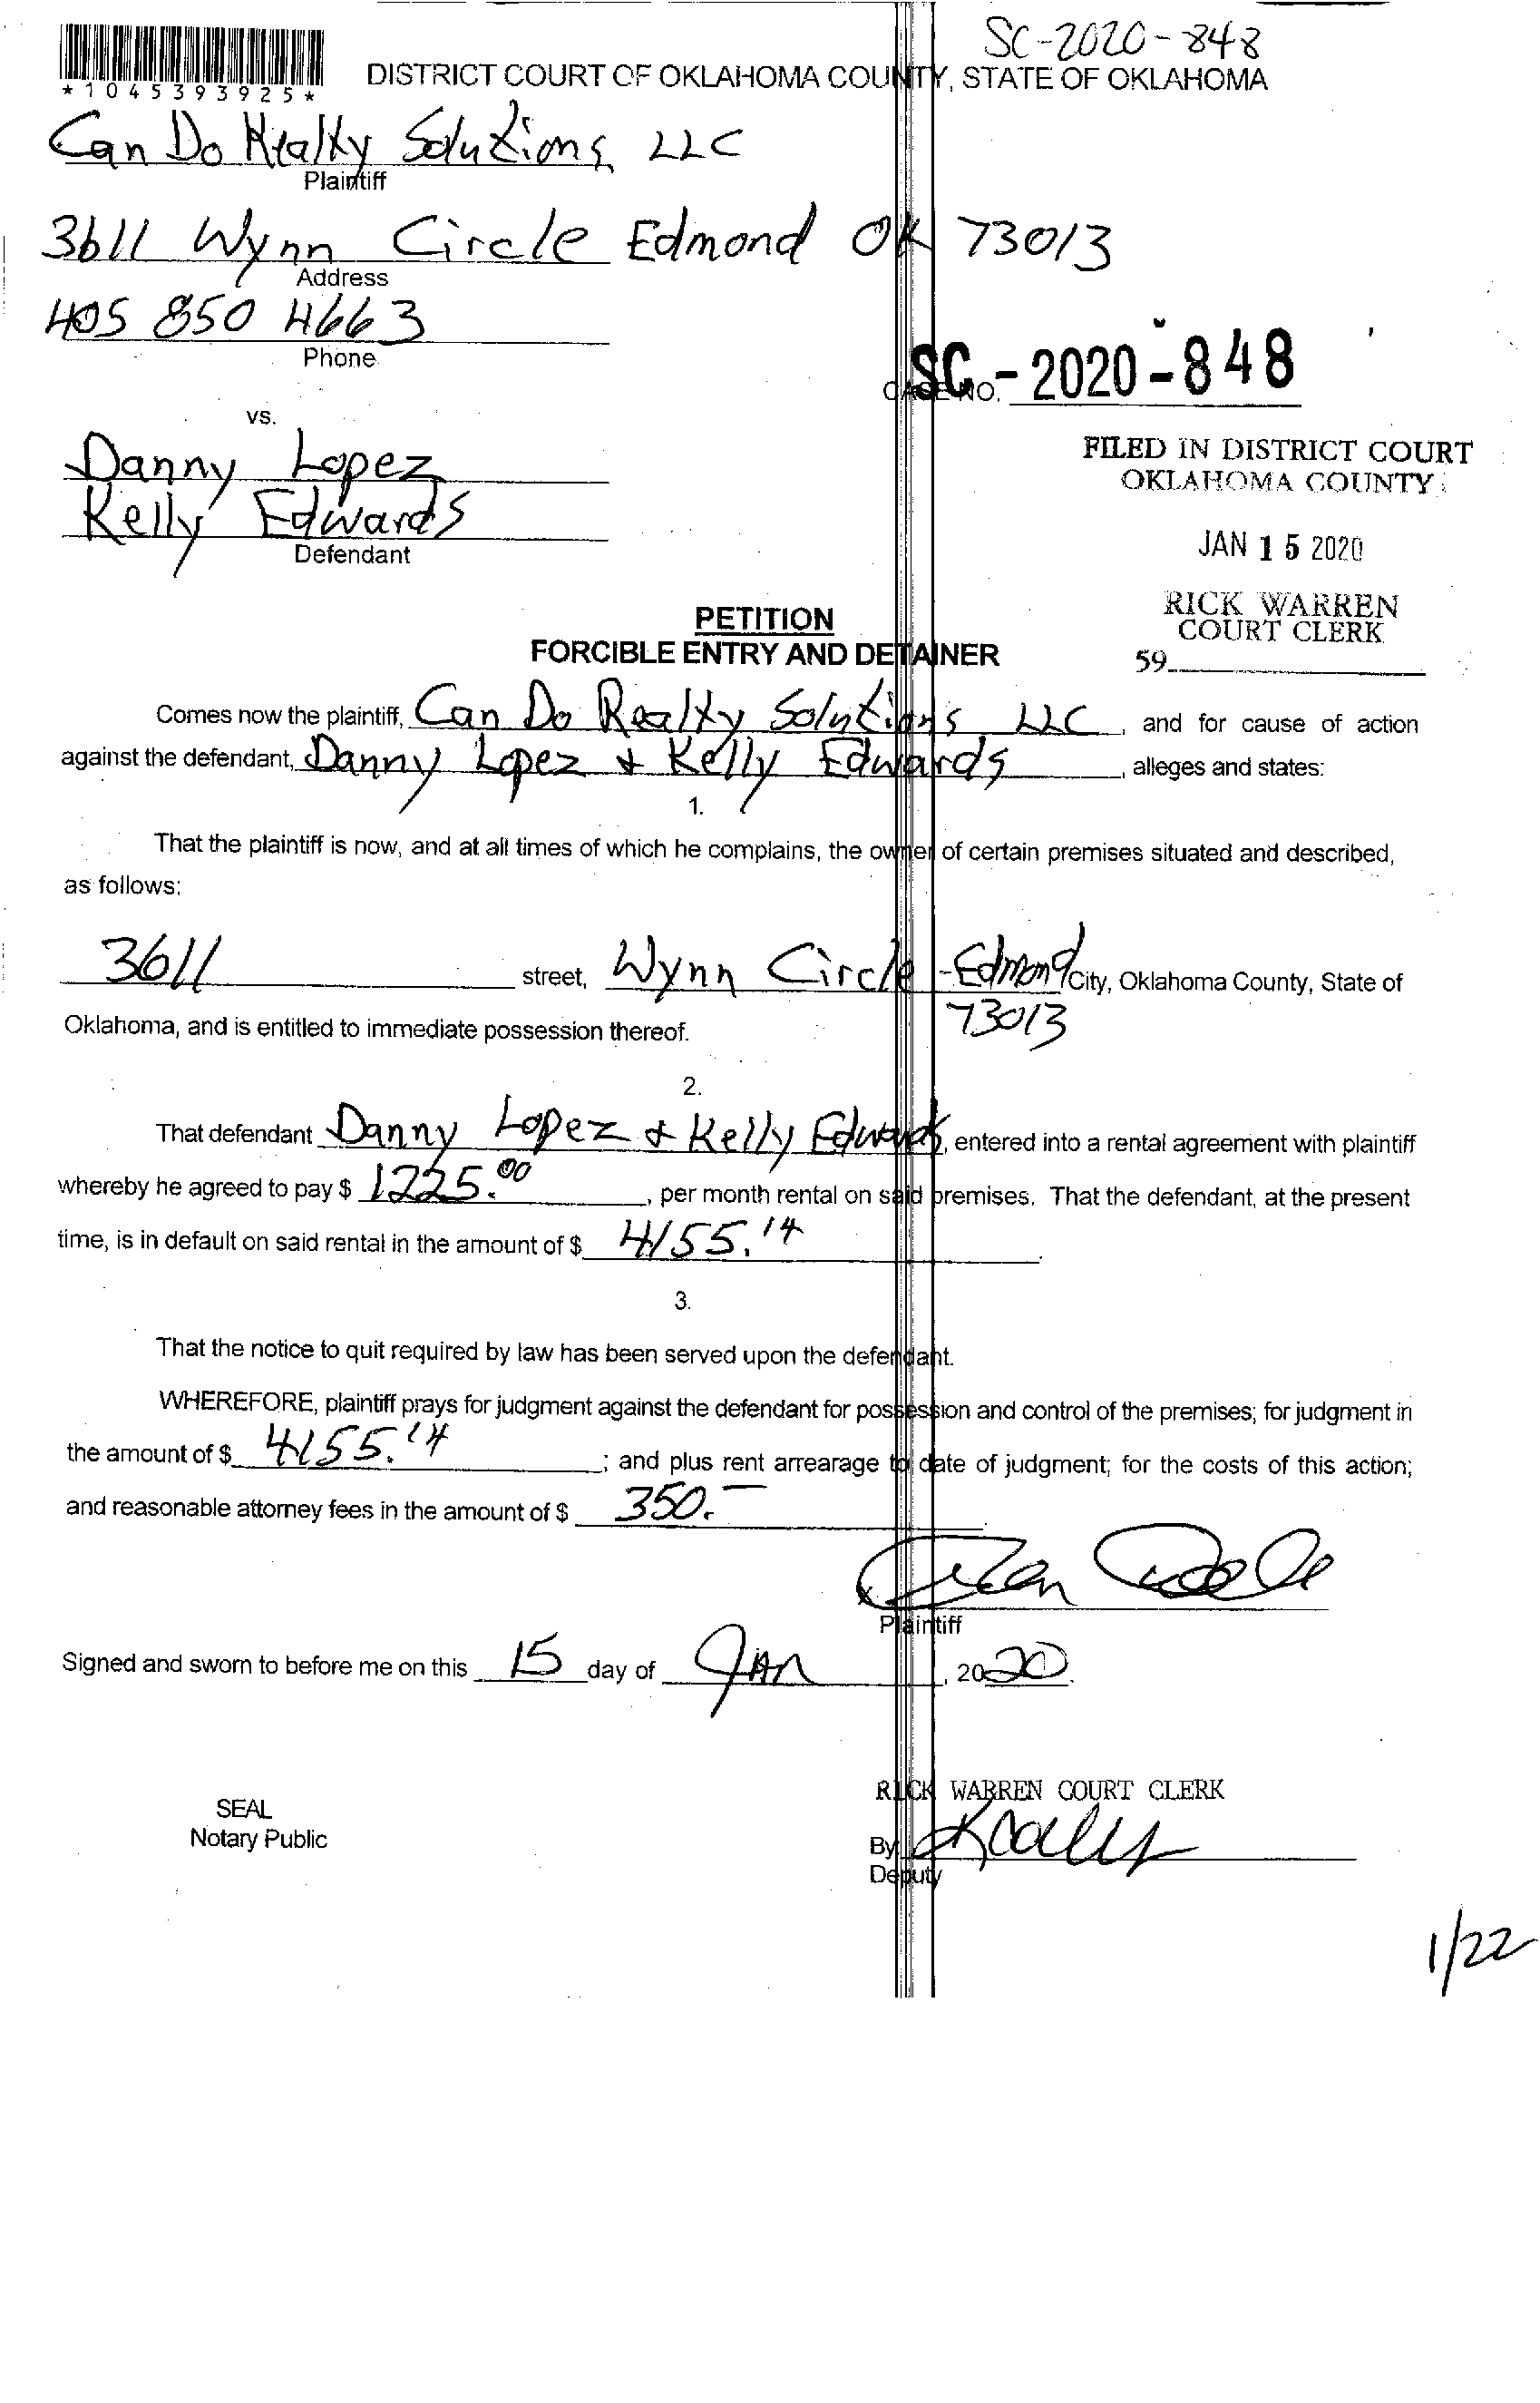 SC-2020-848
*1045393925*
DISTRICT COURT OF OKLAHOMA COUNTY, STATE OF OKLAHOMA
Can Do Realty Solutions LLC
Plaintiff
3611 Wynn Circle Edmond OK 73013
Address
405 850 4663
Phone
SC-2020-848
CASE NO.
vs.
Danny Lopez
Kelly Edwards
Defendant
FILED IN DISTRICT COURT
OKLAHOMA COUNTY
JAN 15 2020
RICK WARREN
COURT CLERK
59
PETITION
FORCIBLE ENTRY AND DETAINER
Comes now the plaintiff, Can Do Realty Solutions LLC, and for cause of action
against the defendant, Danny Lopez + Kelly Edwards, alleges and states:
1.
That the plaintiff is now, and at all times of which he complains, the owner of certain premises situated and described,
as follows:
3611 street, Wynn Circle - Edmond City, Oklahoma County, State of
73013
Oklahoma, and is entitled to immediate possession thereof.
2.
That defendant Danny Lopez + Kelly Edwards, entered into a rental agreement with plaintiff
whereby he agreed to pay $ 1225.00, per month rental on said premises. That the defendant, at the present
time, is in default on said rental in the amount of $ 4155.14.
3.
That the notice to quit required by law has been served upon the defendant.
WHEREFORE, plaintiff prays for judgment against the defendant for possession and control of the premises; for judgment in
the amount of $ 4155.14; and plus rent arrearage to date of judgment; for the costs of this action;
and reasonable attorney fees in the amount of $ 350.-
x
Plaintiff
Signed and sworn to before me on this 15 day of Jan, 2020.
SEAL
Notary Public
RICK WARREN COURT CLERK
By
Deputy
1/22